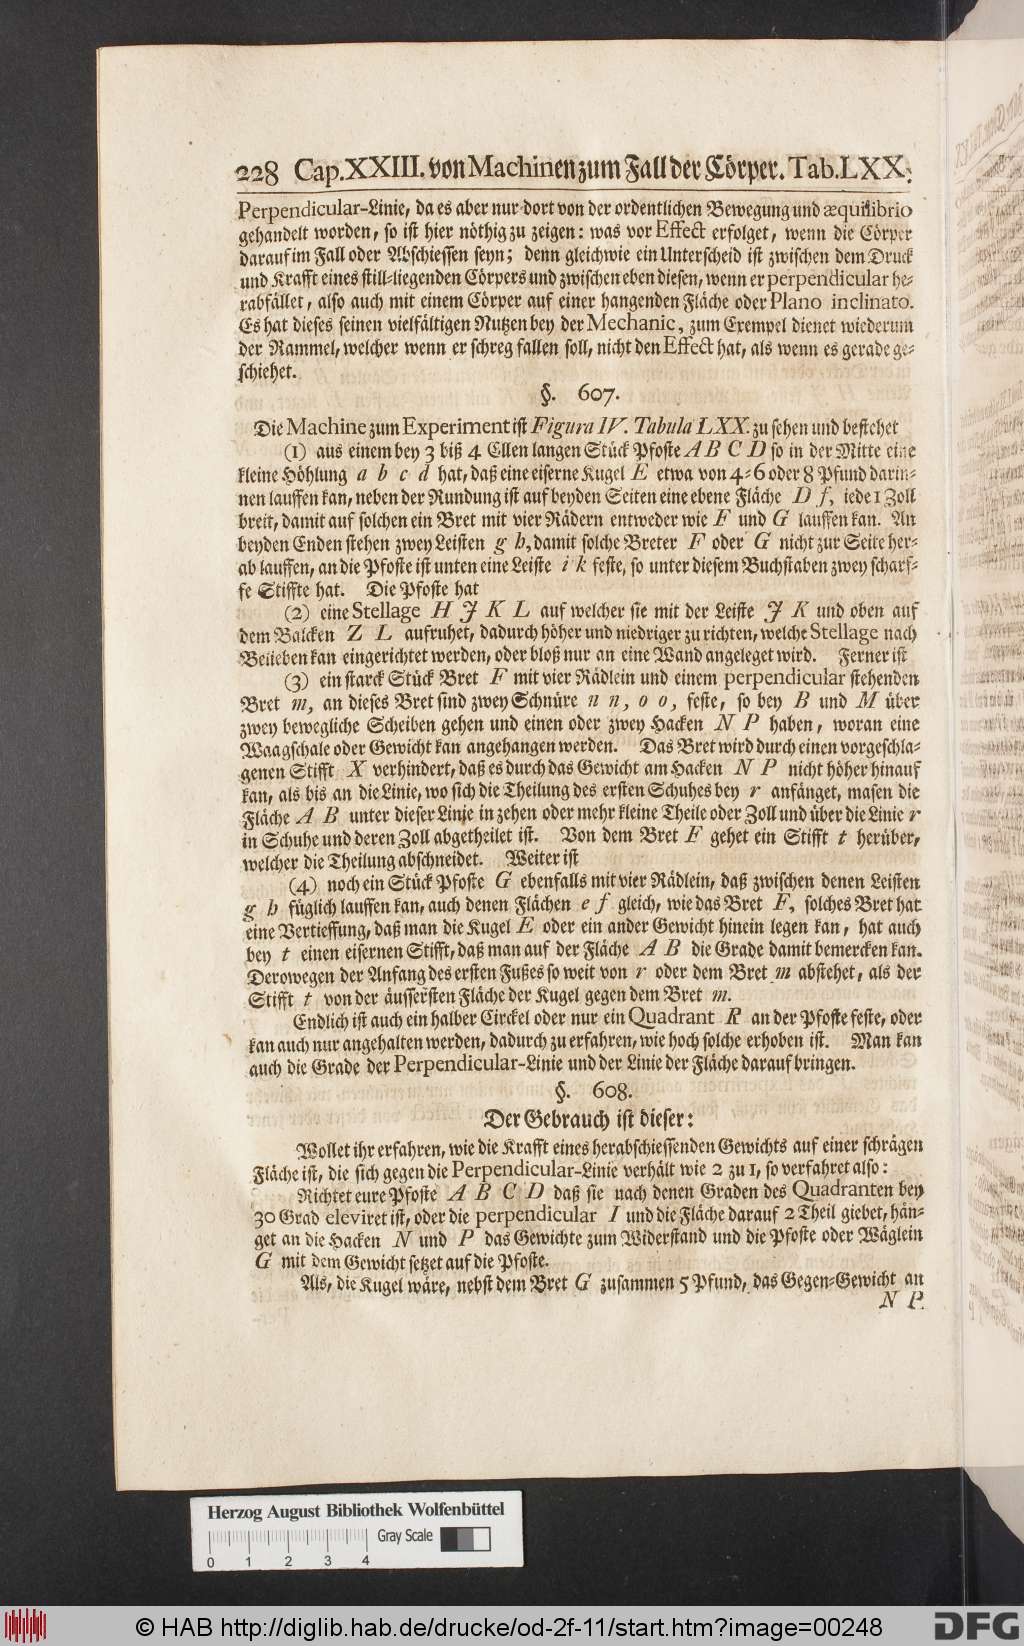 228 Cap. XXIII. von Machinen zum Fall der Cörper. Tab. LXX.
Perpendicular-Linie, da es aber nur dort von der ordentlichen Bewegung und æquilibrio
gehandelt worden, so ist hier nöthig zu zeigen: was vor Effect erfolget, wenn die Cörper
darauf im Fall oder Abschiessen seyn; denn gleichwie ein Unterscheid ist zwischen dem Druck
und Krafft eines still-liegenden Cörpers und zwischen eben diesen, wenn er perpendicular he-
rabfället, also auch mit einem Cörper auf einer hangenden Fläche oder Plano inclinato.
Es hat dieses seinen vielfältigen Nutzen bey der Mechanic, zum Exempel dienet wiederum
der Rammel, welcher wenn er schreg fallen soll, nicht den Effect hat, als wenn es gerade ge-
schiehet.
§. 607.
Die Machine zum Experiment ist Figura IV. Tabula LXX. zu sehen und bestehet
(1) aus einem bey 3 biß 4 Ellen langen Stück Pfoste A B C D so in der Mitte eine
kleine Höhlung a b c d hat, daß eine eiserne Kugel E etwa von 4-6 oder 8 Pfund darin-
nen lauffen kan, neben der Rundung ist auf beyden Seiten eine ebene Fläche D f, iede 1 Zoll
breit, damit auf solchen ein Bret mit vier Rädern entweder wie F und G lauffen kan. An
beyden Enden stehen zwey Leisten g h, damit solche Breter F oder G nicht zur Seite her-
ab lauffen, an die Pfoste ist unten eine Leiste i k feste, so unter diesem Buchstaben zwey scharf-
fe Stiffte hat. Die Pfoste hat
(2) eine Stellage H J K L auf welcher sie mit der Leiste J K und oben auf
dem Balcken Z L aufruhet, dadurch höher und niedriger zu richten, welche Stellage nach
Belieben kan eingerichtet werden, oder bloß nur an eine Wand angeleget wird. Ferner ist
(3) ein starck Stück Bret F mit vier Rädlein und einem perpendicular stehenden
Bret m, an dieses Bret sind zwey Schnüre n n, o o, feste, so bey B und M über
zwey bewegliche Scheiben gehen und einen oder zwey Hacken N P haben, woran eine
Waagschale oder Gewicht kan angehangen werden. Das Bret wird durch einen vorgeschla-
genen Stifft X verhindert, daß es durch das Gewicht am Hacken N P nicht höher hinauf
kan, als bis an die Linie, wo sich die Theilung des ersten Schuhes bey r anfänget, masen die
Fläche A B unter dieser Linie in zehen oder mehr kleine Theile oder Zoll und über die Linie r
in Schuhe und deren Zoll abgetheilet ist. Von dem Bret F gehet ein Stifft t herüber,
welcher die Theilung abschneidet. Weiter ist
(4) noch ein Stück Pfoste G ebenfalls mit vier Rädlein, daß zwischen denen Leisten
g h füglich lauffen kan, auch denen Flächen e f gleich, wie das Bret F, solches Bret hat
eine Vertieffung, daß man die Kugel E oder ein ander Gewicht hinein legen kan, hat auch
bey t einen eisernen Stifft, daß man auf der Fläche A B die Grade damit bemercken kan.
Derowegen der Anfang des ersten Fußes so weit von r oder dem Bret m abstehet, als der
Stifft t von der äussersten Fläche der Kugel gegen dem Bret m.
Endlich ist auch ein halber Circkel oder nur ein Quadrant R an der Pfoste feste, oder
kan auch nur angehalten werden, dadurch zu erfahren, wie hoch solche erhoben ist. Man kan
auch die Grade der Perpendicular-Linie und der Linie der Fläche darauf bringen.
§. 608.
Der Gebrauch ist dieser:
Wollet ihr erfahren, wie die Krafft eines herabschiessenden Gewichts auf einer schrägen
Fläche ist, die sich gegen die Perpendicular-Linie verhält wie 2 zu 1, so verfahret also:
Richtet eure Pfoste A B C D daß sie nach denen Graden des Quadranten bey
30 Grad eleviret ist, oder die perpendicular I und die Fläche darauf 2 Theil giebet, hän-
get an die Hacken N und P das Gewichte zum Widerstand und die Pfoste oder Wäglein
G mit dem Gewicht setzet auf die Pfoste.
Als, die Kugel wäre, nebst dem Bret G zusammen 5 Pfund, das Gegen-Gewicht an
N P.
Herzog August Bibliothek Wolfenbüttel
Gray Scale
0 1 2 3 4
© HAB http://diglib.hab.de/drucke/od-2f-11/start.htm?image=00248
DFG